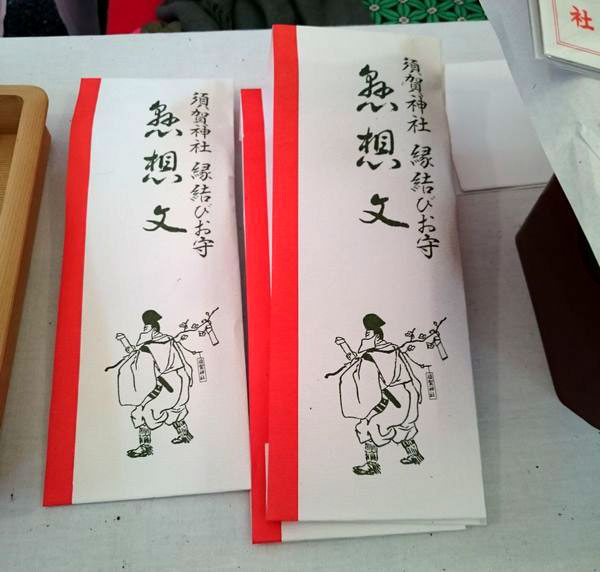 社
須賀神社 縁結びお守
懸想文
須賀神社
須賀神社 縁結びお守
懸想文
須賀神社